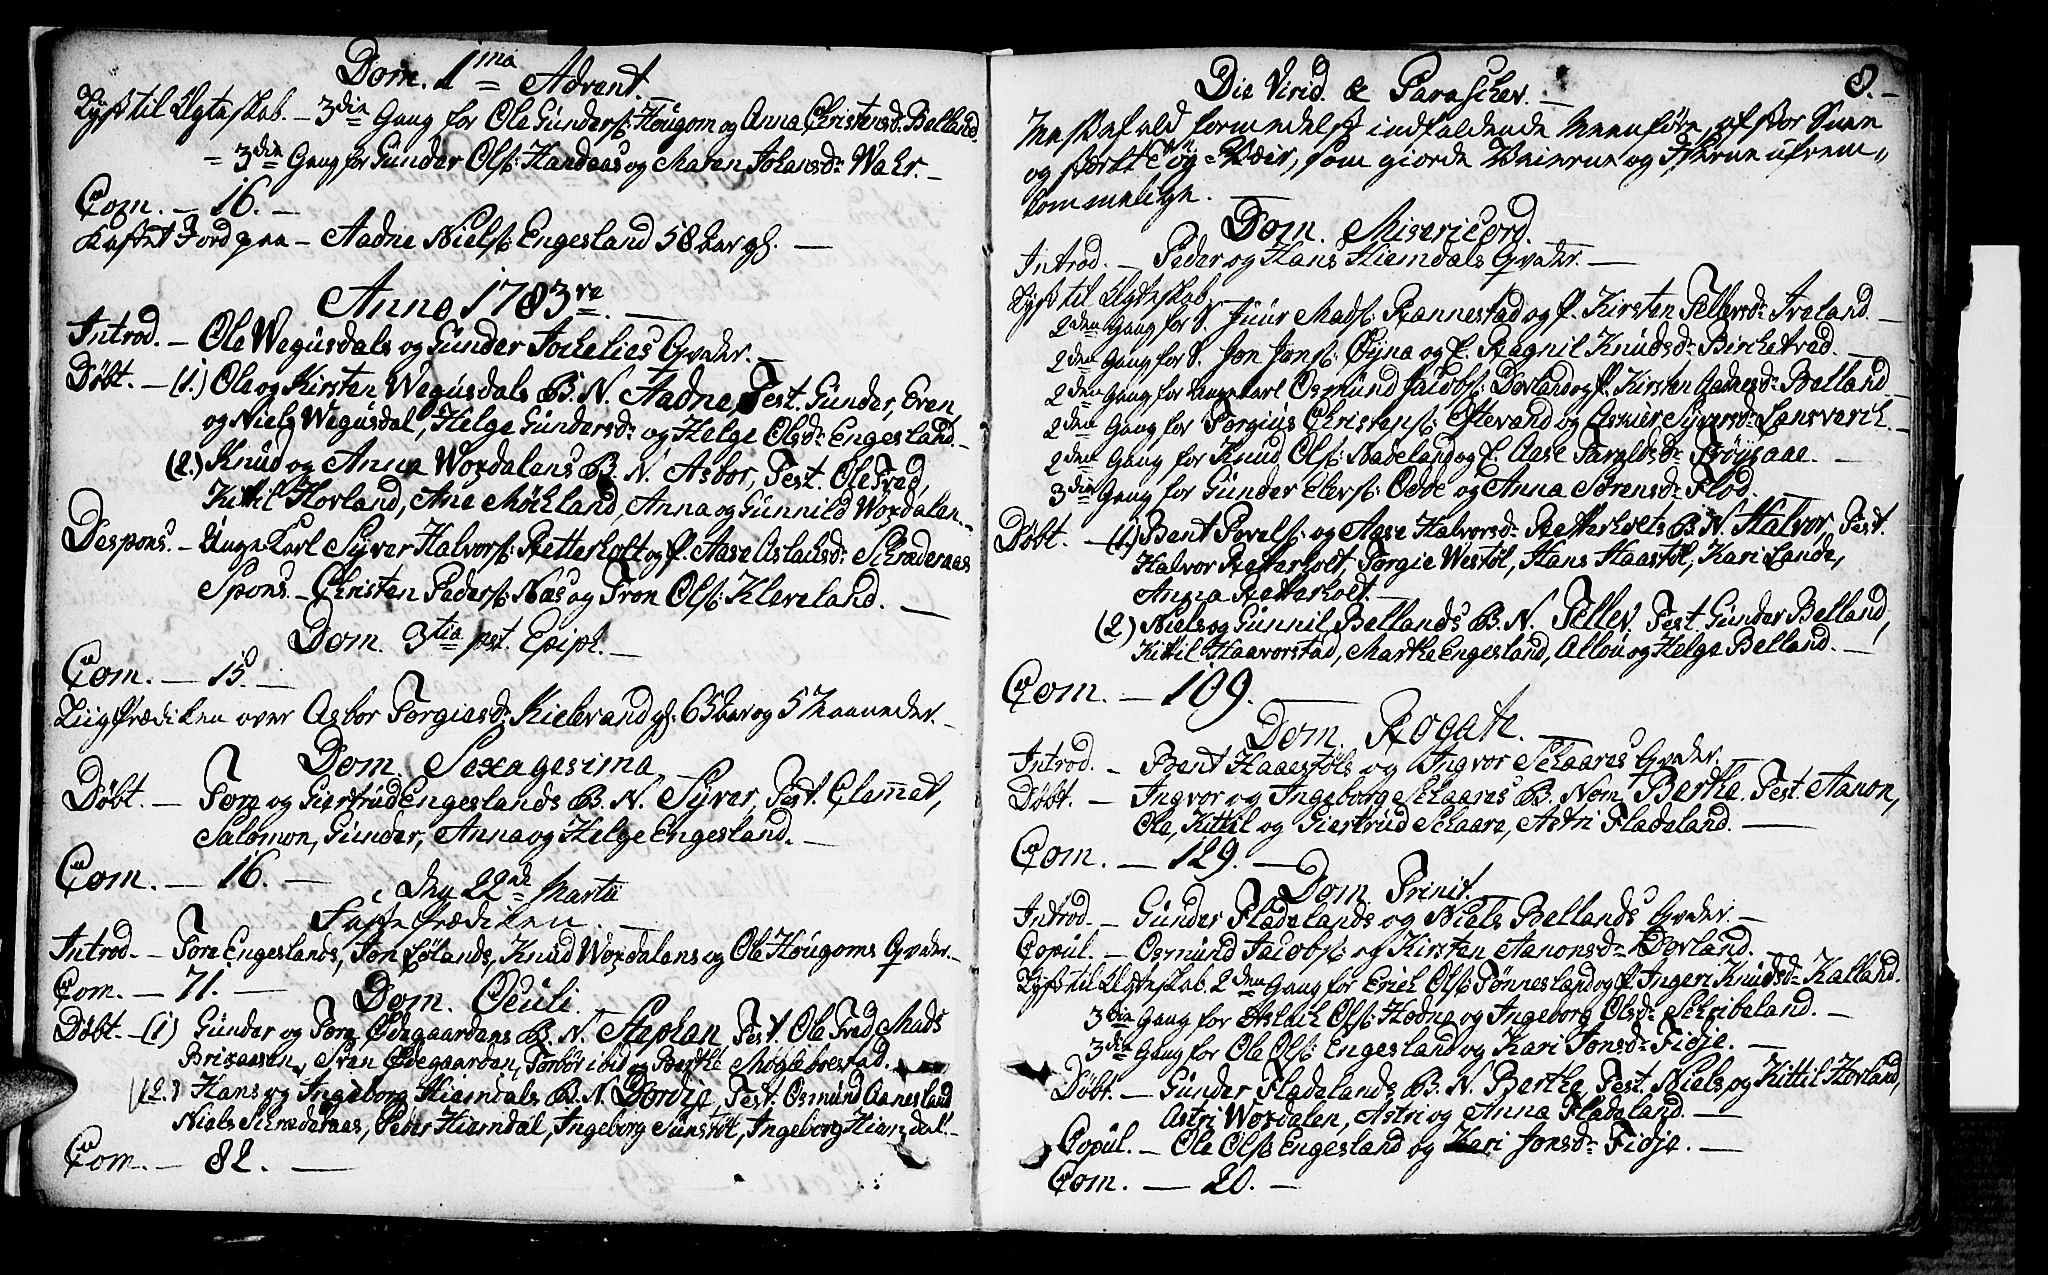 Dom. 1ma Advent.
Lyst til Ægteskab. – 3die Gang for Ole Gunders: Hougom og Anna Christensd: Belland.
= 3die Gang for Gunder Ols: Kandaas og Maren Johansd: Wahr. –
Com. – 16. –
Kastet Jord paa – Aadne Niels: Engesland 58 aar gl. –
Anno 1783re. –
Introd. – Ole Wegusdals og Gunder Qvder. –
Døbt. – (1.) Ole og Kirsten Wegusdals B. N. Aadne, Test. Gunder, Even,
og Niels Wegusdal, Helge Gundersd: og Helge Olsd: Engesland. –
(2.) Knud og Anna Woxdalens B. N. Asbor, Test. Ole Trad,
Kittil Horland, Ane Møchland, Anna og Gunnild Woxdalen. –
Despons. – Unge Karl Syver Halvors: Retterholt og P. Aase Aslachsd: Schraderaas
Spons. – Christen Peders: Næs og Tron Ols: Kleveland. –
Dom. 3tia pst. Epiph. –
Com. – 15. –
Liigprædiken over Asbor Torgiesd: Kielevand gl. 65 aar og 5 Maaneder. –
Dom. Sexagesima
Døbt. – Tore og Giertrud Engeslands B. N. Syver, Test. Clammet,
Salomon, Gunder, Anna og Helge Engesland. –
Com. – 16. –
den 22de Martii
Faste Prædiken. –
Introd. – Tore Engeslands, Jon Eölands, Knud Woxdalens og Ole Hougoms Qvder. –
Com. – 71. –
Dom. Oculi.
Døbt. – (1) Gunder og Tore Ødegaardens B. N. Stephan, Test. Ole Trad, Mads
Brixesen, Sven Ødegaarden, Torbör ibid og Berthe Møglebrestad. –
(2.) Hans og Ingeborg Hiemdals B. N. Dordie, Test. Osmund Aanesland
Niels Schraderaas, Peder Hiemdal, Ingeborg Sunstøl, Ingeborg Hiemdal. –
Com. – 82. –
8. –
Die Virid. & Paraschev. –
Messefald formedelst indfaldende Meenføre, af stor Snee
og stærkt Töy-Veir, som giorde Veierne og Isene ufrem=
kommelige. –
Dom. Misericord.
Introd. – Peder og Hans Hiemdals Qvder. –
Lyst til Ægteskab.
2den Gang for S. Juur Mads: Rannestad og P. Kirsten Tellevsd: Iveland. –
2den Gang for S. Jon Jons: Øyna og P. Ragnil Knudsd: Birchetved. –
2den Gang for Unge Karl Osmund Jacobs: Dovland og P. Kirsten Aanensd: Belland –
2den Gang for Torgius Christens: Eftevand og Syversd: Lansverck. –
2den Gang for Knud Ols: Nadeland og P. Aase Targlsd: Frøysaae. –
3die Gang for Gunder Elevs: Odde og Anna Sørensd: Flod. –
Døbt. – (1) Bent Povels: og Aase Halvorsd: Retterholts B. N. Halvor, Test.
Halvor Retterholt, Torgie Westøl, Hans Haastøl, Kari Lande,
Anna Retterholt. –
(2) Niels og Gunnil Bellands B. N. Tellev, Test. Gunder Belland,
Kittil Haavorstad, Marthe Engesland, Allou og Helge Belland. –
Com. – 109. –
Dom. Rogate.
Introd. – Bent Haaestøls og Ingvor Schaares Qvder. –
Døbt. – Ingvor og Ingeborg Schaares B. Nom. Berthe. Test. Aanon,
Ole, Kittil og Giertrud Schaare, Astri Fladeland. –
Com. – 129. –
Dom. Trinit.
Introd. – Gunder Fladelands og Niels Bellands Qvder. –
Copul. – Osmund Jacobs: og Kirsten Aanonsd: Dovland. –
Lyst til Ægteskab. 2den Gang for Erich Ols: Tønnesland og P. Ingeri Knudsd: Kalland.
3die Gang for Aslach Ols: Hodne og Ingeborg Olsd: Schribeland. –
3die Gang for Ole Ols: Engesland og Kari Jonsd: Fidje. –
Døbt. – Gunder Fladelands B. N. Berthe, Test. Niels og Kittil Horland,
Astri Woxdalen, Astri og Anna Fladeland. –
Copul. – Ole Ols: Engesland og Kari Jonsd: Fidje. –
Com. – 20. –